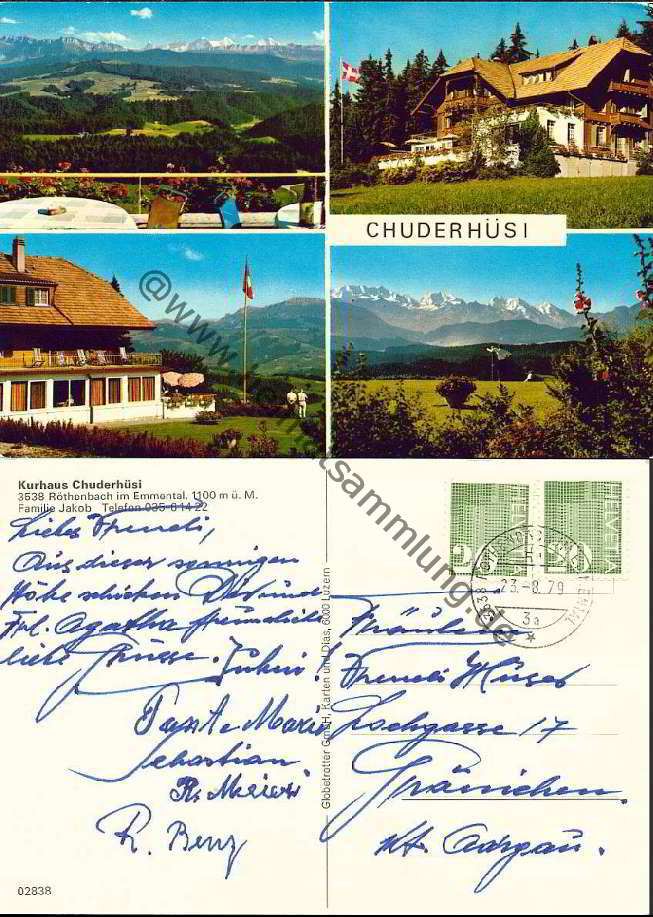 CHUDERHÜSI
Kurhaus Chuderhüsi
3538 Röthenbach im Emmental, 1100 m ü. M.
Familie Jakob Telefon 035 6 14 22
Liebes Vreneli,
Aus dieser sonnigen
Höhe schicken Dir und
Frl. Agatha freundliche
liebe Grüsse.
Tante Marie
Sebastian
R. Meier
R. Benz
02838
Globetrotter GmbH, Karten und Dias, 6000 Luzern
HELVETIA HELVETIA
3538 RÖTHENBACH
23.-8.79
3a
Fräulein
Vreneli
Lochgasse 17
Gränichen.
Kt. Aargau.